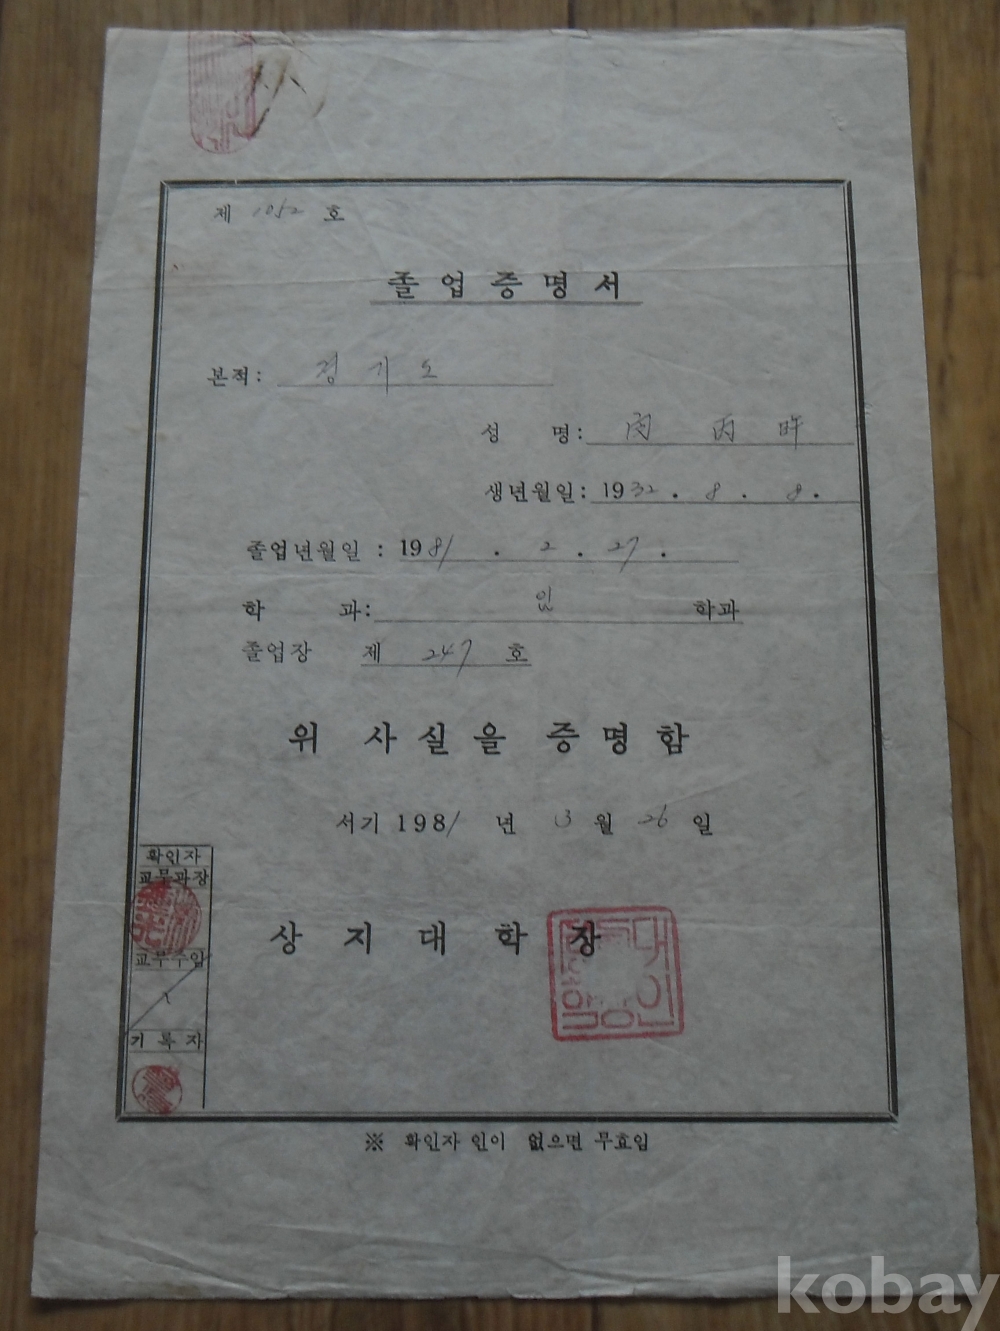 제 1052 호
졸업증명서
본적: 경기도
성 명: 丙旿
생년월일: 1932. 8. 8.
졸업년월일 : 1981. 2. 27.
학 과: 학과
졸업장 제 247 호
위 사실을 증명함
서기 1981년 3월 26일
확인자
교무과장
상지대학장
교무주임
기록자
※ 확인자 인이 없으면 무효임
kobay